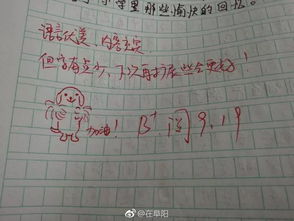 小学里那些愉快的回忆。
语言优美、内容充实
但字有点少，下次再扩展些会更好！
加油！ B⁺ 阅 9.19
@在阜阳